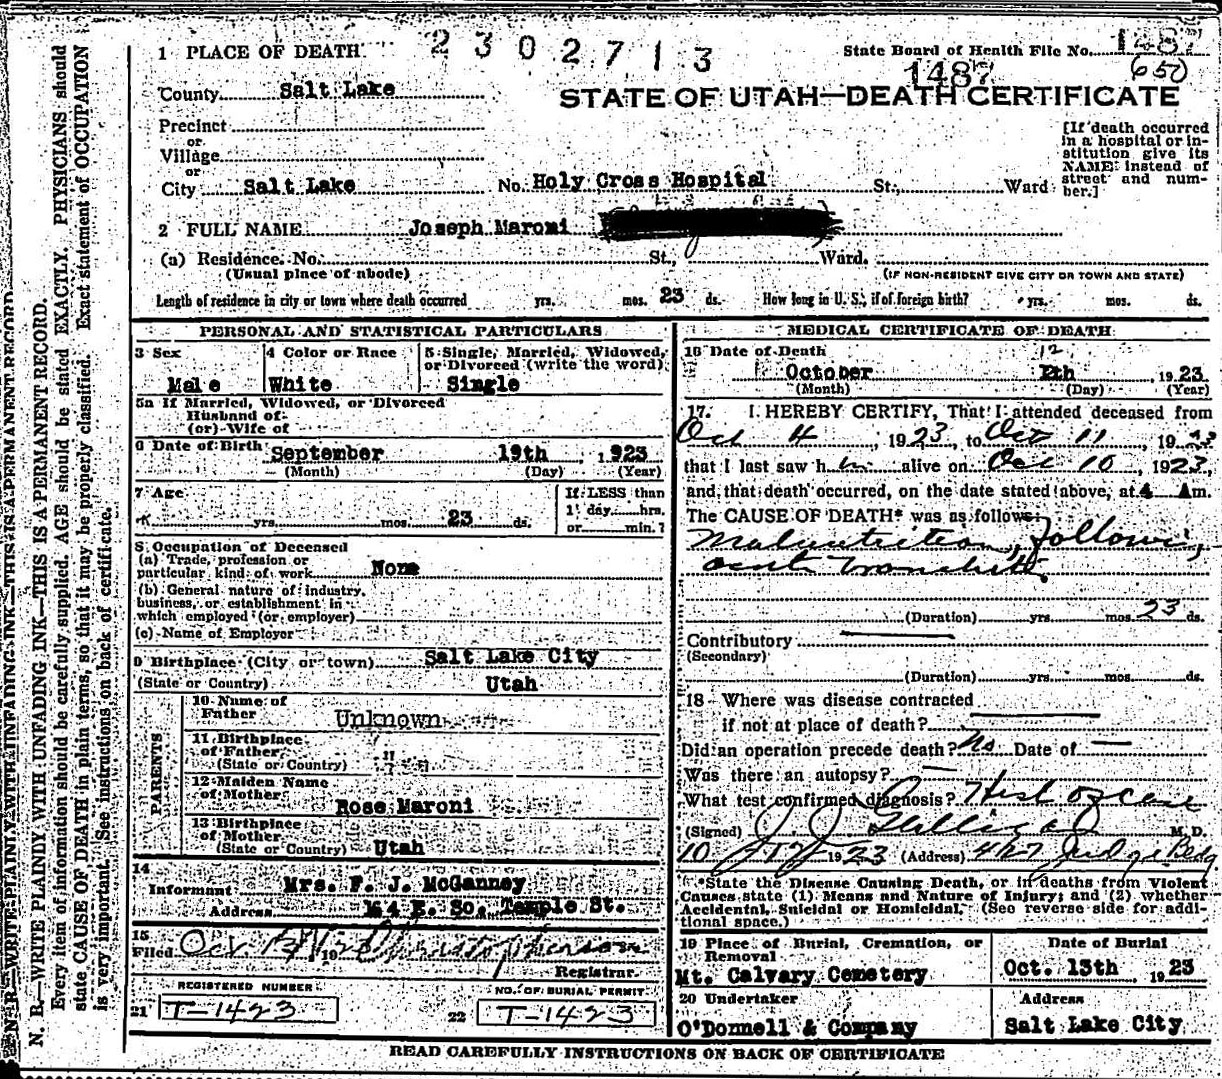 2302713
1 PLACE OF DEATH
State Board of Health File No. 1487
1487 (650)
County Salt Lake
STATE OF UTAH—DEATH CERTIFICATE
Precinct
or
Village
or
City Salt Lake No. Holy Cross Hospital St., Ward
[If death occurred
in a hospital or in-
stitution give its
NAME instead of
street and num-
ber.]
2 FULL NAME Joseph Maroni
(a) Residence. No. St., Ward.
(Usual place of abode) (IF NON-RESIDENT GIVE CITY OR TOWN AND STATE)
Length of residence in city or town where death occurred yrs. mos. 23 ds. How long in U. S., if of foreign birth? yrs. mos. ds.
PERSONAL AND STATISTICAL PARTICULARS
3 Sex
Male
4 Color or Race
White
5 Single, Married, Widowed,
or Divorced (write the word)
Single
5a If Married, Widowed, or Divorced
Husband of
(or) Wife of
6 Date of Birth September 19th 1923
(Month) (Day) (Year)
7 Age
yrs. mos. 23 ds.
If LESS than
1 day hrs.
or min.?
8 Occupation of Deceased
(a) Trade, profession or
particular kind of work None
(b) General nature of industry,
business, or establishment in
which employed (or employer)
(c) Name of Employer
9 Birthplace (City or town) Salt Lake City
(State or Country) Utah
PARENTS
10 Name of
Father Unknown
11 Birthplace
of Father
(State or Country) "
12 Maiden Name
of Mother Rose Maroni
13 Birthplace
of Mother
(State or Country) Utah
14
Informant Mrs. F. J. McGanney
Address 164 E. So. Temple St.
15
Filed Oct. 13 192
Registrar.
REGISTERED NUMBER
21 T-1423
NO. OF BURIAL PERMIT
22 T-1423
MEDICAL CERTIFICATE OF DEATH
16 Date of Death
12
October 1923
(Month) (Day) (Year)
17. I HEREBY CERTIFY, That I attended deceased from
Oct 4, 1923, to Oct 11, 19
that I last saw h alive on Oct 10, 1923,
and that death occurred, on the date stated above, at 4 Am.
The CAUSE OF DEATH* was as follows:
Malnutrition, following
acute bronchitis
(Duration) yrs. mos. 23 ds.
Contributory
(Secondary)
(Duration) yrs. mos. ds.
18 Where was disease contracted
if not at place of death?
Did an operation precede death? No Date of —
Was there an autopsy? —
What test confirmed diagnosis? Hist of case
(Signed) J. J. M.D.
10/12/1923 (Address) 427 Judge Bldg
*State the Disease Causing Death, or in deaths from Violent
Causes state (1) Means and Nature of Injury; and (2) whether
Accidental, Suicidal or Homicidal. (See reverse side for addi-
tional space.)
19 Place of Burial, Cremation, or
Removal
Mt. Calvary Cemetery
Date of Burial
Oct. 13th 1923
20 Undertaker
O'Donnell & Company
Address
Salt Lake City
READ CAREFULLY INSTRUCTIONS ON BACK OF CERTIFICATE
N. B.—WRITE PLAINLY WITH UNFADING INK—THIS IS A PERMANENT RECORD
N. B.—WRITE PLAINLY WITH UNFADING INK—THIS IS A PERMANENT RECORD.
Every item of information should be carefully supplied. AGE should be stated EXACTLY. PHYSICIANS should
state CAUSE OF DEATH in plain terms, so that it may be properly classified. Exact statement of OCCUPATION
is very important. See instructions on back of certificate.